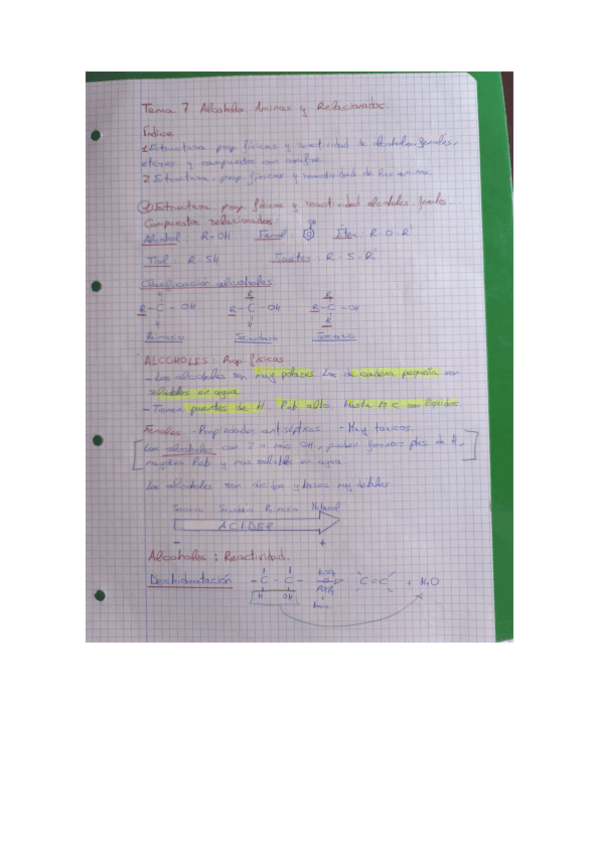 Tema 7 Alcoholes Aminas y Relacionados
Índice
1 Estructura prop físicas y reactividad de alcoholes, fenoles,
éteres y compuestos con azufre.
2 Estructura prop físicas y reactividad de las aminas.
1 Estructura prop físicas y reactividad alcoholes fenoles
Compuestos relacionados
Alcohol R-OH Fenol OH Éter R-O-R'
Tiol R-SH R-S-R'
Clasificación alcoholes
H R R
R-C-OH R-C-OH R-C-OH
H H R
Primario Secundario Terciario
ALCOHOLES: Prop físicas
- Los alcoholes son muy polares. Los de cadena pequeña son
solubles en agua
- Tienen puentes de H. Peb alto. Hasta 11 C son líquidos
Fenoles - Propiedades antisépticas - Muy toxicos.
Los alcoholes con 2 o más OH, pueden formar ptes de H,
mayores Peb y mas solubles en agua.
Los alcoholes son ácidos y bases muy débiles
Terciario Secundario Primario Metanol
ACIDEZ
- +
Alcoholes: Reactividad.
Deshidratación -C-C- C=C + H2O
H OH